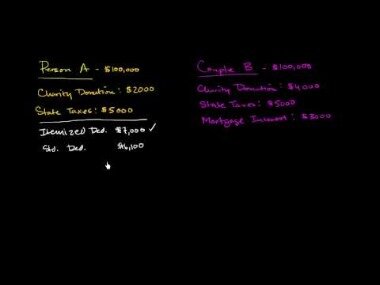 Person A - $100,000
Charity Donation: $2000
State Taxes: $5000
Itemized Ded. $7,000 ✓
Std. Ded. $6,100
Couple B - $100,000
Charity Donation: $4000
State Taxes: $5000
Mortgage Interest: $3000